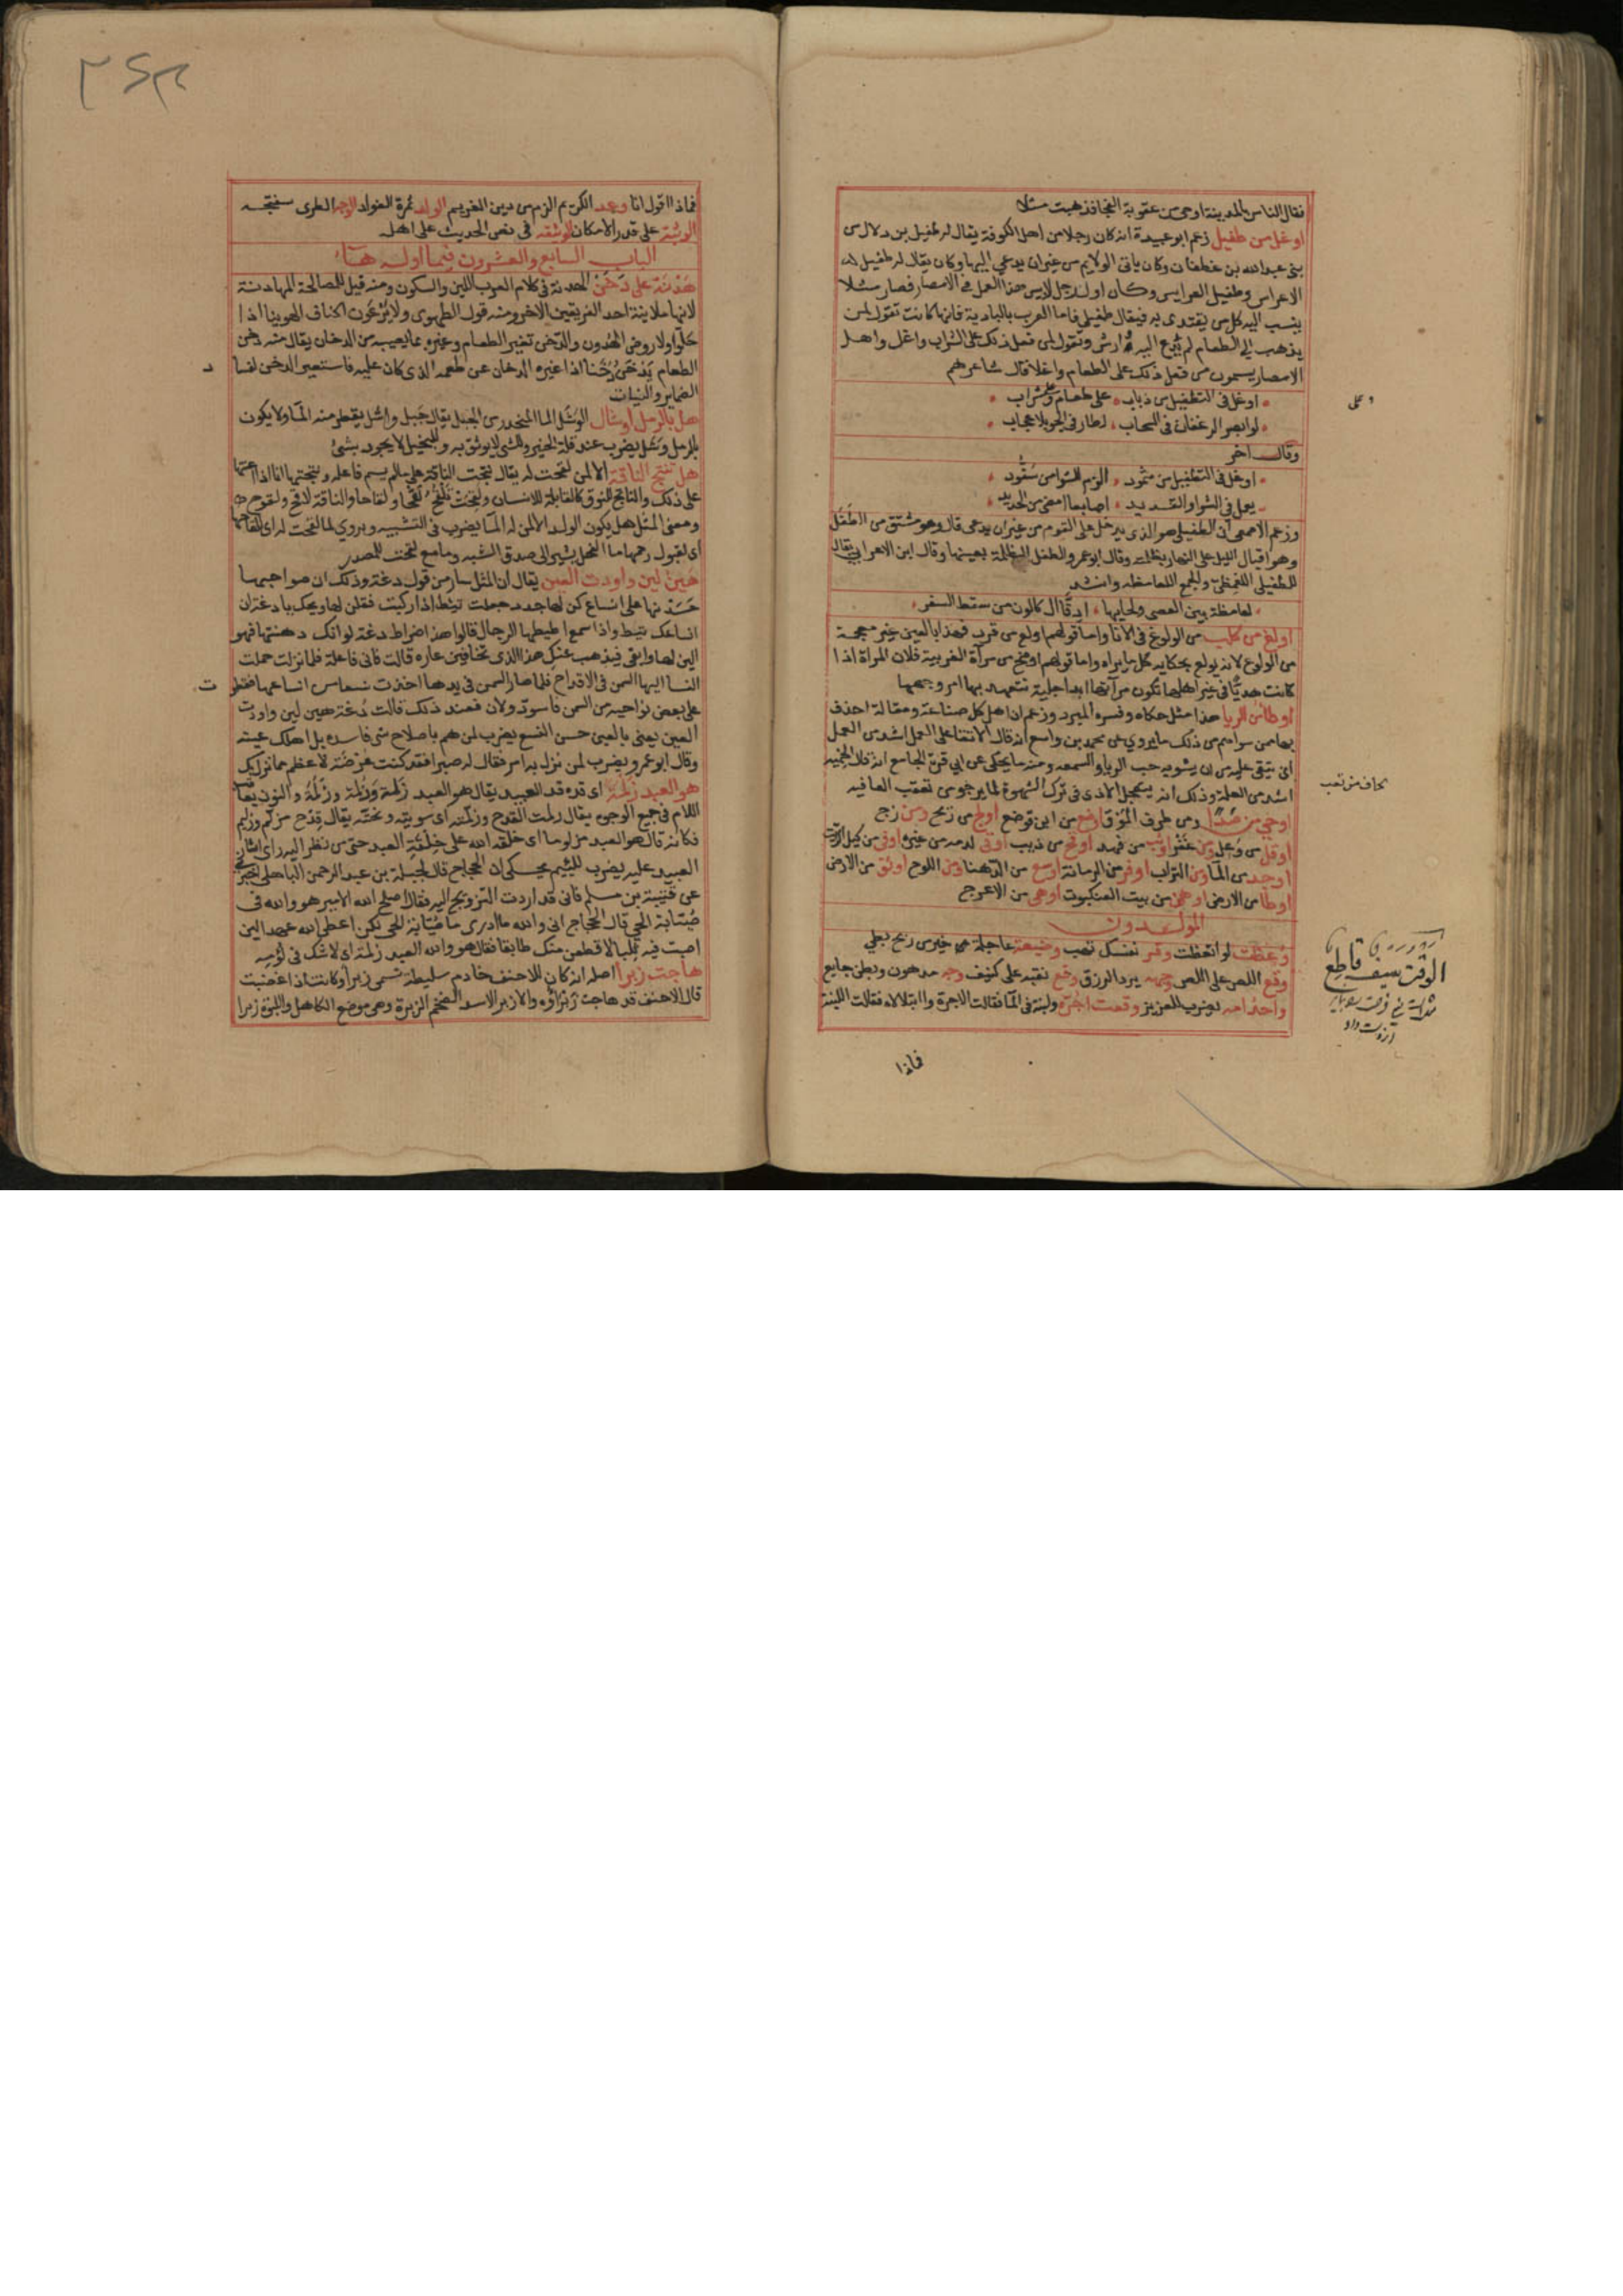 فقال الناس بالمدينة اوحى من عقوبة الفجاة فذهبت مثلا
اوغل من طفيل زعم ابو عبيدة انه كان رجلا من اهل الكوفة يقال له طفيل بن دلال من
بنى عبد الله بن غطفان وكان ياتى الولايم من غير ان يدعي اليها وكان يقال له طفيل
الاعراس وطفيل العرايس وكان اول رجل لابس هذا العمل في الامصار فصار مثلا
ينسب اليه كل من يقتدى به فيقال طفيلي فاما العرب بالبادية فانها كانت تقول لمن
يذهب الي الطعام لم يدع اليه وارش وتقول لمن فعل ذلك على الشراب واغل واهل
الامصار يسمون من فعل ذلك على الطعام واغلا قال شاعرهم
اوغل فى التطفيل من ذباب على طعام وعلى شراب
لو ابصر الرغفان فى السحاب لطار فى الجو بلا حجاب
وقال اخر
اوغل فى التطفيل من مثمود الزم للشوا من سفود
يعمل فى الشوا والقديد اصابعا امضى من الحديد
وزعم الاصمعى ان الطفيلى هو الذى يدخل على القوم من غير ان يدعى قال وهو مشتق من الطفل
وهو اقبال الليل على النهار بظلمته وقال ابو عمرو الطفل الظلمة بعينها وقال ابن الاعرابي يقال
للطفيلى اللعمظى والجمع اللعامظه وانشد
لعامظة بين العصى ولحايها ادقا اكالون من سقط السفر
اولغ من كلب من الولوغ فى الانا واما قولهم اولع من قرد فهذا بالعين غير معجمة
من الولوع لانه يولع بحكاية كل ما يراه واما قولهم اوضح من مرآة الغريبة فلان المراة اذا
كانت هديا فى غير اهلها تكون مرآتها ابدا جلية تتعهد بها امر وجهها
اوطأ من الريا هذا مثل حكاه وفسره المبرد وزعم ان اهل كل صناعة ومقالة احذق
بها ممن سواهم من ذلك ما يروي عن محمد بن واسع انه قال الاتقا على العمل اشد من العمل
اى يتقى عليه من ان يشوبه حب الريا والسمعه ومنه ما يحكى عن ابي قرة الجامع انه قال الحمية
اشد من العلة وذلك انه يتعجل الاذى فى ترك الشهوة لما يرجو من تعقب العافيه
اوحي من صدا ومن طرف الموق اوضع من ابن قوضع اولج من ريح ومن زج
اوقل من وعل ومن غفر اوثب من فهد اوقح من ذيب اوقى لدمه من عير اوفى من كيل الزيت
اوجد من الما ومن التراب اوفر من الرمانة اوسع من الدهنا ومن اللوح اوثق من الارض
اوطا من الارض اوهى من بيت العنكبوت اوهى من الاعرج
المولدون
وعظت لو اتعظت وقر نفسك تهب وضيعة عاجلة خير من ربح بطى
وقع اللص على اللص وجهه يرد الرزق وقع نقبه على كنيف وجه مدهون وبطن جايع
واحد امه يضرب للعزيز وقعت اجرة ولبنة فى الما فقالت الاجرة وا ابتلالاه فقالت اللبنة
فماذا
وعلى
يخاف من تعب
الوقت سيف قاطع
فماذا اقول انا وعد الكريم الزم من دين الغريم الولد ثمرة الفواد الوجه الطرى سفتجه
الوثبة على قدر الامكان الوثيقه فى نص الحديث على اهله
الباب السابع والعشرون فيما اوله هاء
هدنة على دخن الهدنة فى كلام العرب اللين والسكون ومنه قيل للمصالحة المهادنة
لانها ملاينة احد الفريقين الاخر ومنه قول الطهوى ولا يرعون اكناف الهوينا اذا
حلوا ولا روض الهدون والدخن تغير الطعام وغيره مما يصيبه من الدخان يقال منه دخن
الطعام يدخن دخنا اذا غيره الدخان عن طعمه الذى كان عليه فاستعير الدخن لفسا
د
الضماير والنيات
هل بالرمل اوشال الوشل الما المنحدر من الجبل يقال جبل واشل يقطر منه الما ولا يكون
بالرمل وشل يضرب عند قلة الخير وللشى لا يوثق به وللبخيل لا يجود بشئ
هل تنتج الناقة الا لمن لقحت له يقال نتجت الناقة على ما لم يسم فاعله ونتجتها انا اذا اعنتها
على ذلك والناتج للنوق كالقابلة للانسان ولقحت تلقح لقحا ولقاحا والناقة لاقح ولقوح
ومعنى المثل هل يكون الولد الا لمن له الما يضرب فى التشبيه ويروي لما لقحت له اى للقاحها
اى لقبول رحمها ما الفحل يشير الى صدق الشبه وما مع لقحت للمصدر
هين لين واودت العين يقال ان المثل سار من قول دغة وذلك ان صواحبها
حسدنها على انساع كن لها جدد جعلت تئط اذا ركبت فقلن لها ويحك يا دغة ان
انساعك تئط واذا سمع اطيطها الرجال قالوا هذا ضراط دغة لو انك دهنتها فهو
الين لها وابقى فيذهب عنك هذا الذى تخافين عاره قالت فانى فاعلة فلما نزلت حملت
النسا اليها السمن فى الاقداح فلما صار السمن فى يدها اخذت نسعا من انساعها فقطر
ت
على بعض نواحيه من السمن فاسود ولان فعند ذلك قالت دغة هين لين واودت
العين يعنى بالعين حسن النسع يضرب لمن هم باصلاح شى فاسده بل اهلك عينه
وقال ابو عمرو يضرب لمن نزل به امر فقال له صبرا فقد كنت عرضة لاعظم مما نزل بك
هو العبد زلمة اى قده قد العبيد يقال هو العبد زلمة وزلمة وزلمة وزلمة والنون يعاقب
اللام فى جميع الوجوه يقال زلمت القدح وزلمته اى سويته ونحته يقال قدح مزلم وزليم
فكانه قال هو العبد مزلوما اى خلقه الله على خلقة العبد حتى من نظر اليه راى اثار
العبيد عليه يضرب للئيم يحكى ان الحجاج قال لجبلة بن عبد الرحمن الباهلى اخبرنى
عن قتيبة بن مسلم فانى قد اردت التزويج اليه فقال اصلح الله الامير هو والله فى
صيابة الحي قال الحجاج انى والله ما ادرى ما صيابة الحى لكن اعطى الله عهدا لئن
اصبت فيه ثلبا لاقطعن منك طابقا فقال هو والله العبد زلمة اى لا شك فى لؤمه
هاجت زبرا اصله انه كان للاحنف خادم سليطة تسمى زبرا وكانت اذا غضبت
قال الاحنف قد هاجت زبرا والازبر الاسد الضخم الزبرة وهى موضع الكاهل واللبوة زبرا